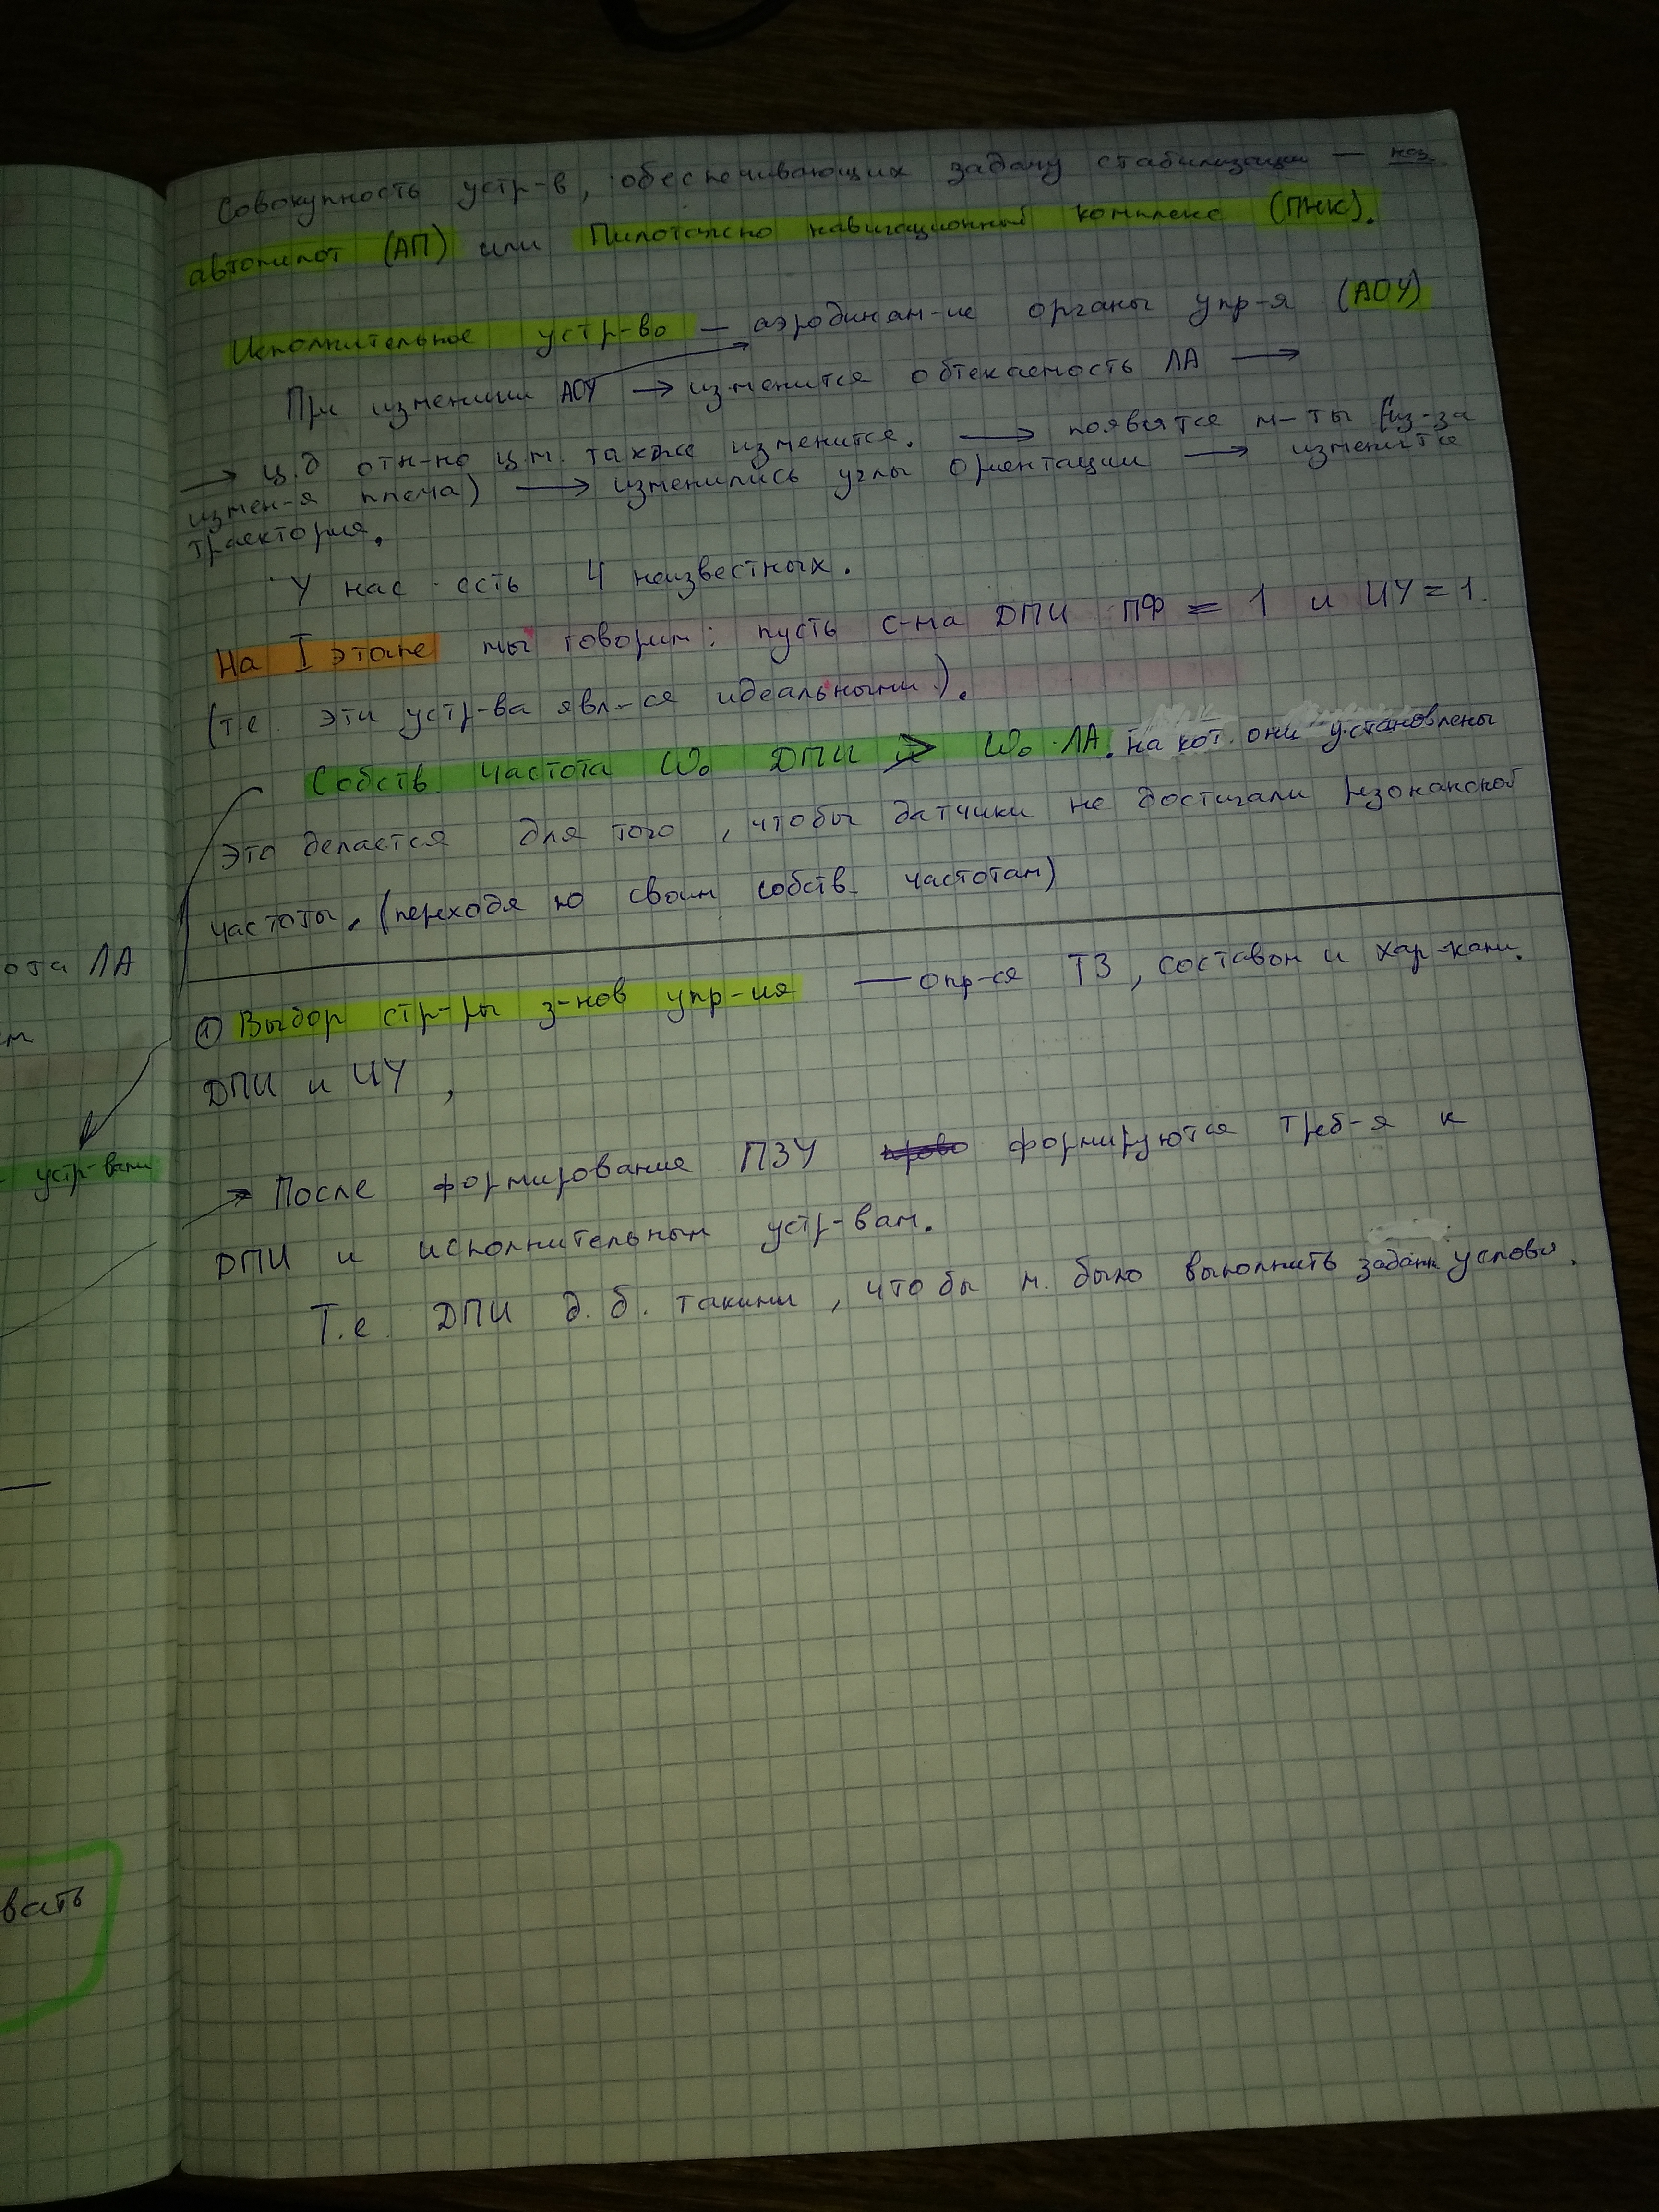 Совокупность устр-в, обеспечивающих задачу стабилизации — наз.
автопилот (АП) или Пилотажно навигационный комплекс (ПНК).
Исполнительное устр-во — аэродинам-ие органы упр-я (АОУ)
При изменении АОУ → изменится обтекаемость ЛА →
→ ц.д отн-но ц.м. также изменится. → появятся м-ты (из-за
измен-я плеча) → изменились углы ориентации → изменится
траектория.
У нас есть 4 неизвестных.
На I этапе мы говорим: пусть с-ма ДПИ ПФ = 1 и ИУ = 1.
(т.е. эти устр-ва явл-ся идеальными).
Собств. частота ω₀ ДПИ > ω₀ ЛА. на кот. они установлены
Это делается для того, чтобы датчики не достигали резонансной
частоты. (переходя по своим собств. частотам)
① Выбор стр-ры з-нов упр-ия — опр-ся ТЗ, составом и хар-ками.
ДПИ и ИУ,
→ После формирование ПЗУ формируются треб-я к
ДПИ и исполнительным устр-вам.
Т.е. ДПИ д.б. такими, что бы м. было выполнить заданн условия.
ота ЛА
устр-вами
вать